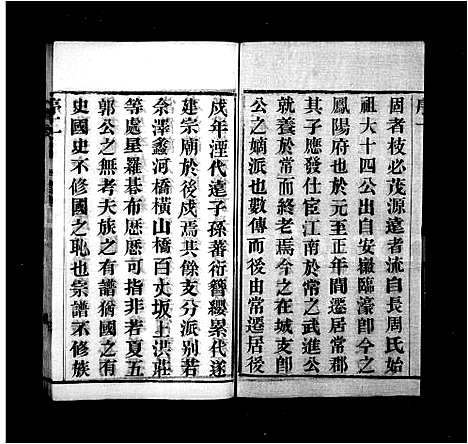 序
周者枝必茂源遠者流自長周氏始
祖大十四公出自安徽臨濠卽今之
鳳陽府也於元至正年間遷居常郡
其子應發仕宦江南於常之武進公
就養於常而終老焉今之在城支卽
公之嫡派也數傳而後由常遷居後
戍年湮代遠子孫蕃衍簪纓累代遂
建宗廟於後戍焉其餘支分派别若
余澤蠡河橋橫山橋百丈坂上洪莊
等處星羅碁布歷歷可指非若夏五
郭公之無考夫族之有譜猶國之有
史國史不修國之恥也宗譜不修族
序二